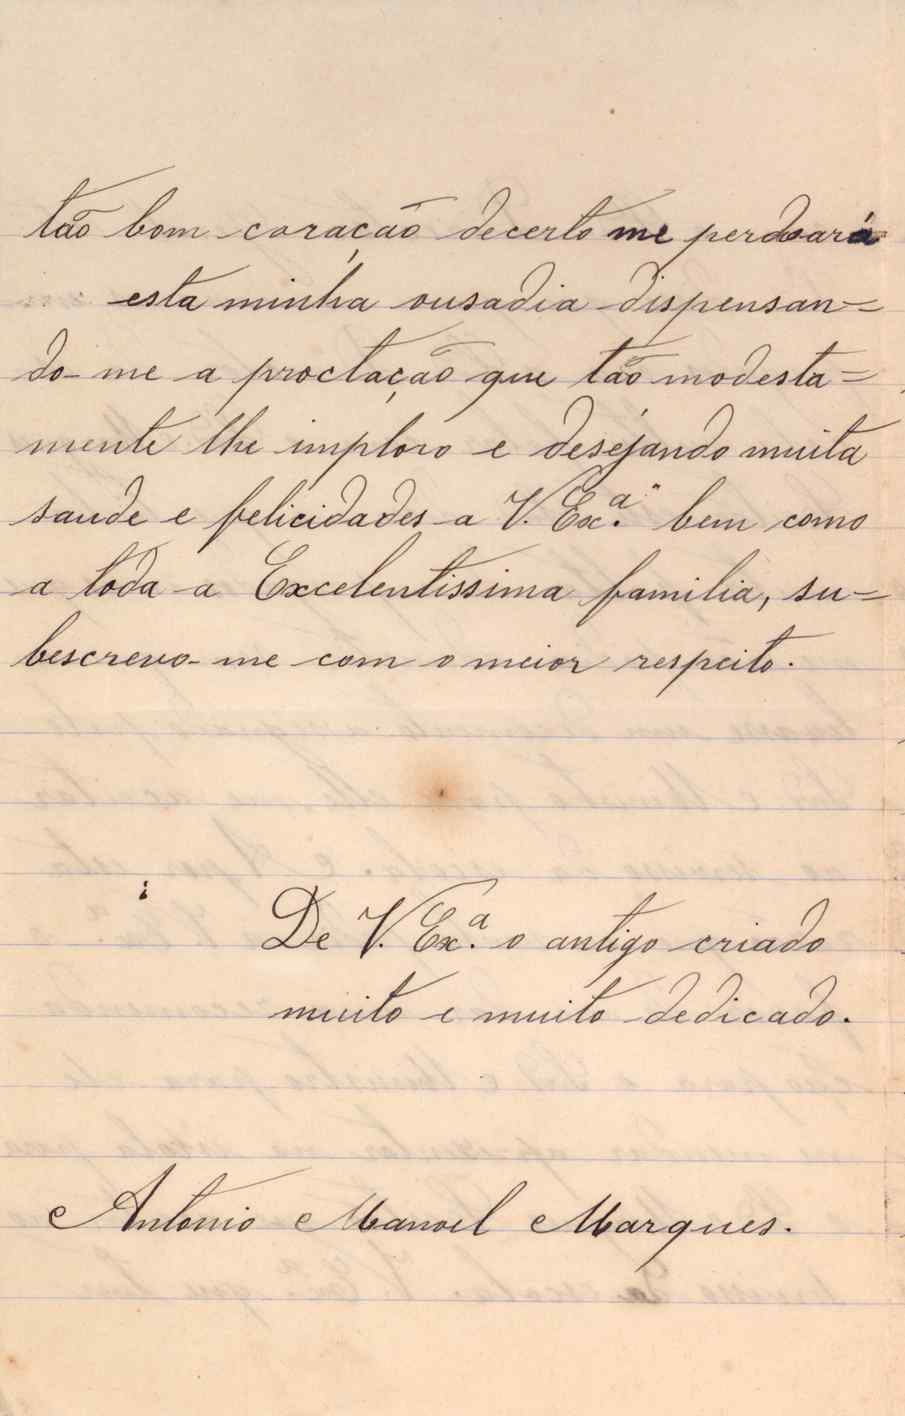 tão bom coração decerto me perdoará
esta minha ousadia dispensan=
do-me a proctação que tão modesta=
mente lhe imploro e desejando muita
saude e felicidades a V. Ex.ª bem como
a toda a Excelentissima familia, su=
bescrevo-me com o meior respeito.
De V. Ex.ª o antigo criado
muito e muito dedicado.
Antonio Manoel Marques.